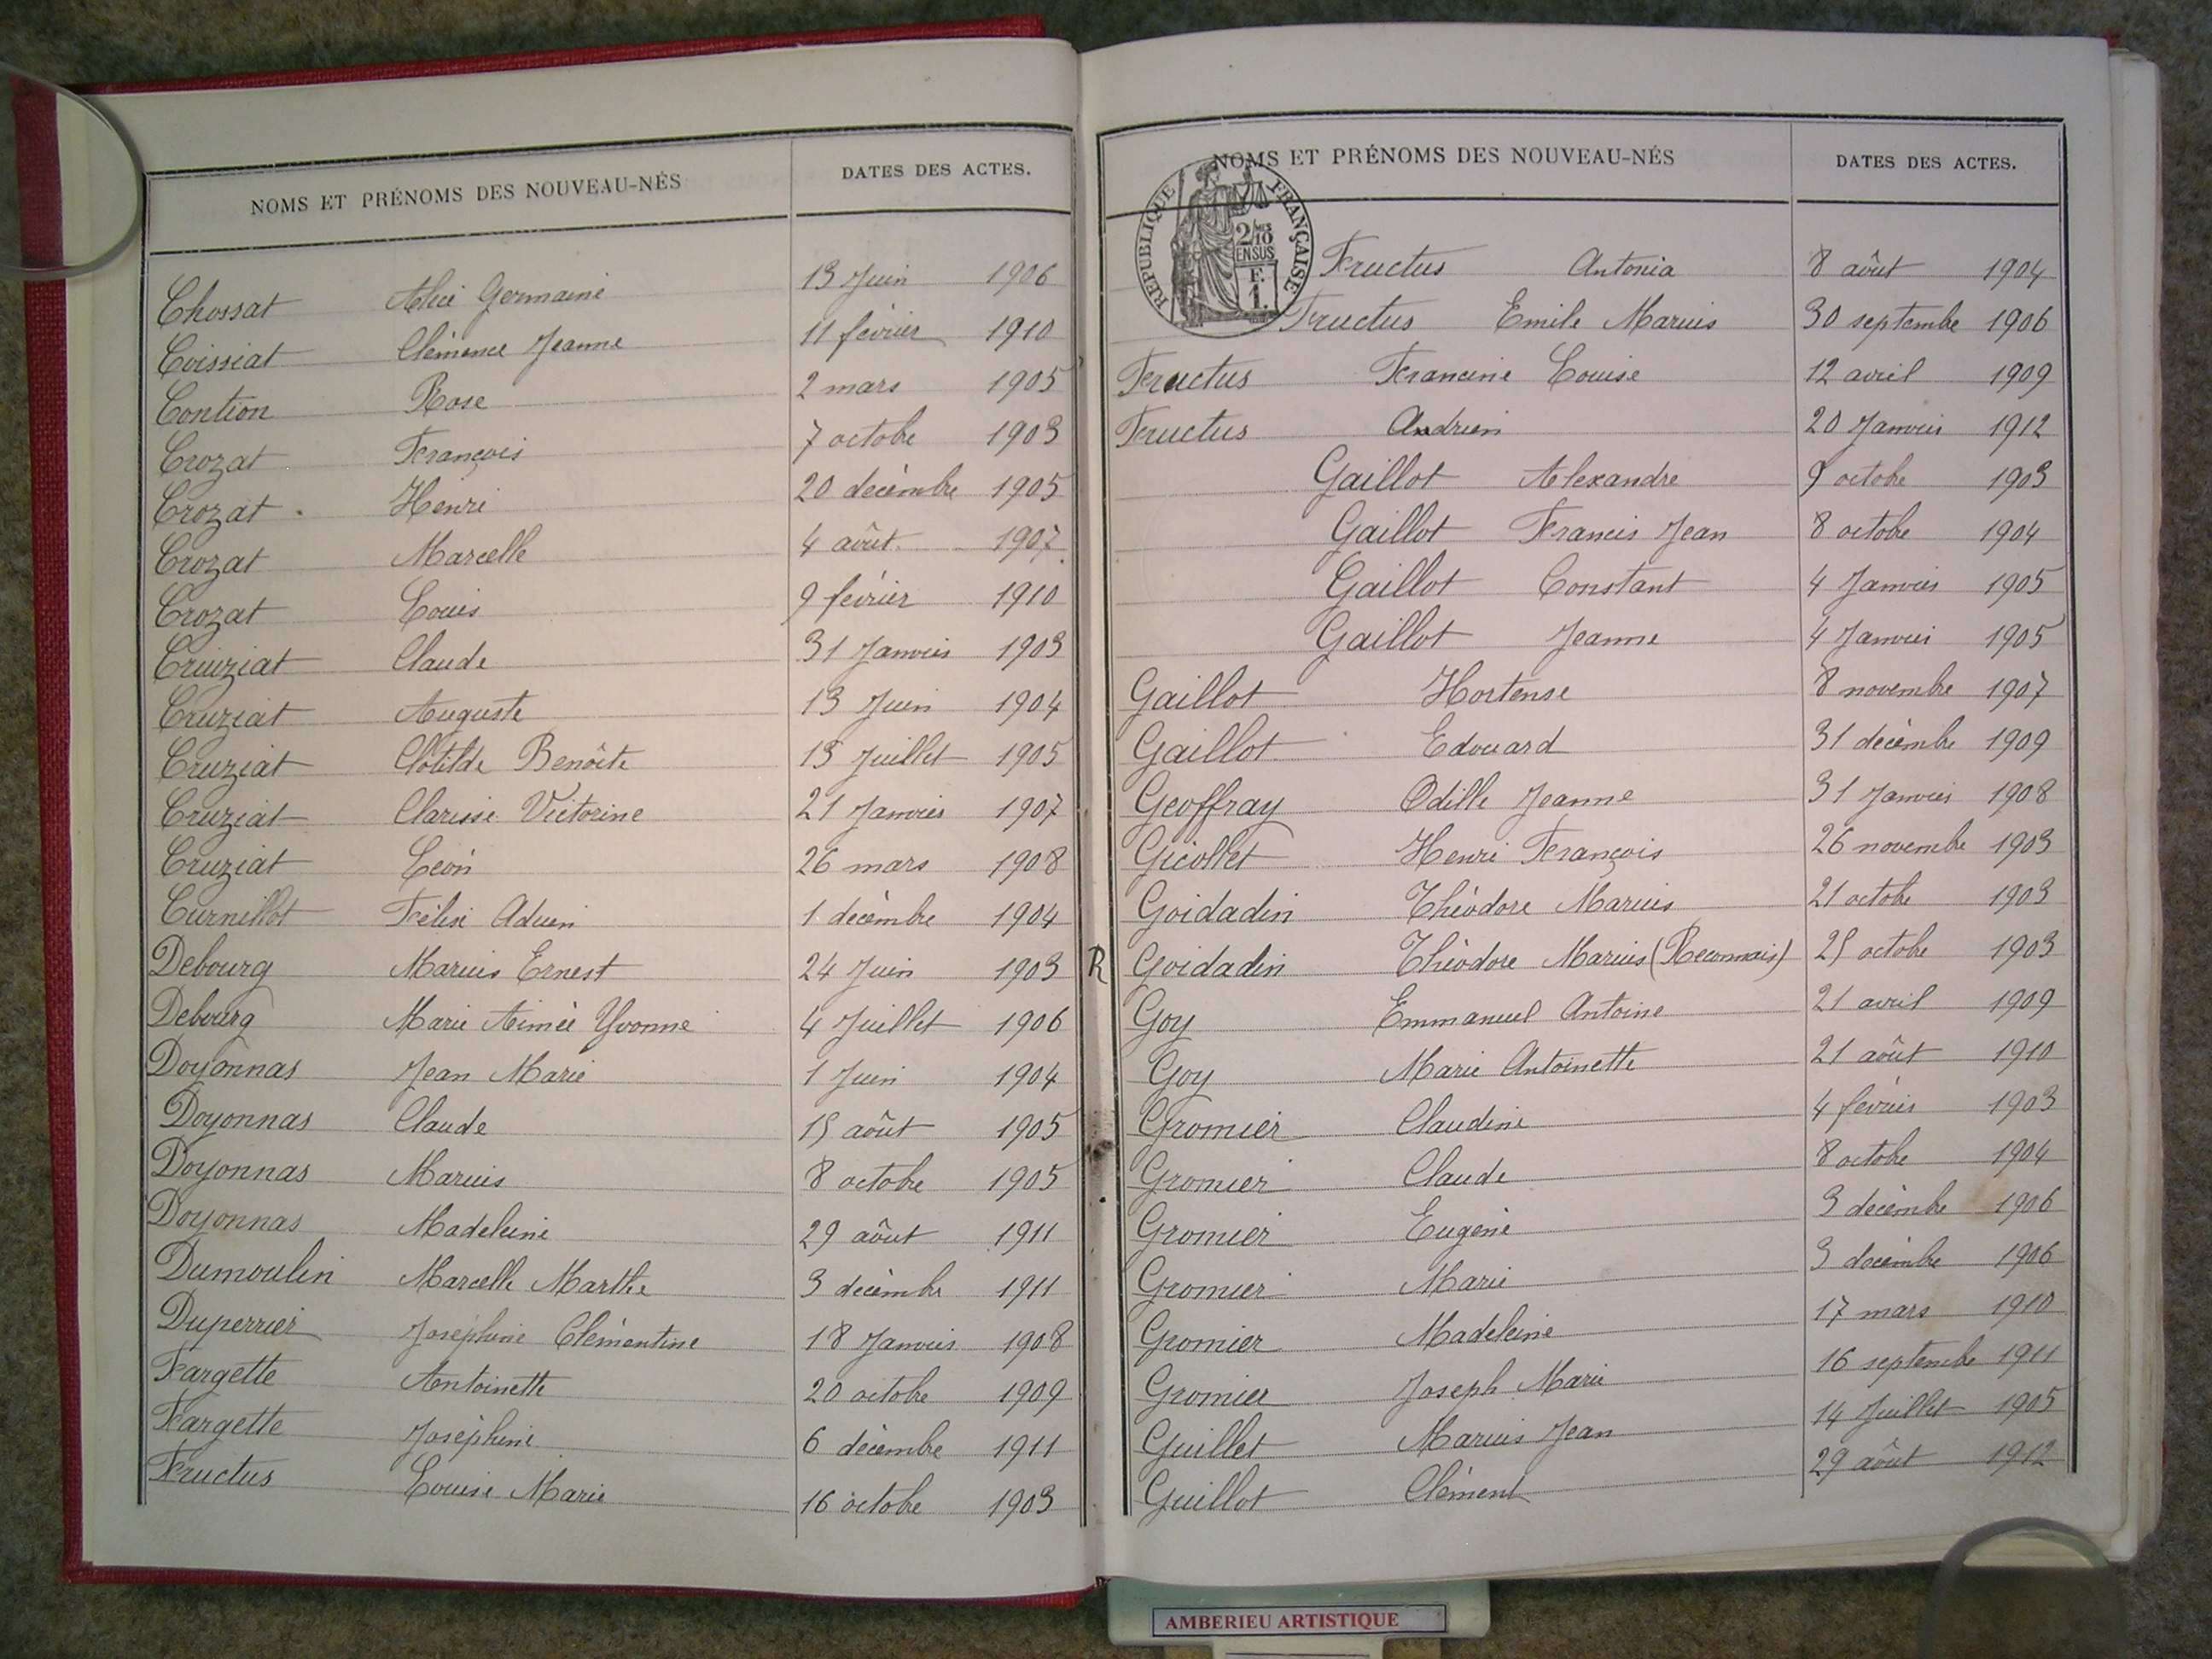 NOMS ET PRÉNOMS DES NOUVEAU-NÉS DATES DES ACTES.
Chossat Alice Germaine 13 Juin 1906
Coissiat Clémence Jeanne 11 février 1910
Contion Rose 2 mars 1905
Crozat François 7 octobre 1903
Crozat Henri 20 décembre 1905
Crozat Marcelle 4 août 1907
Crozat Louis 9 février 1910
Cruiziat Claude 31 Janvier 1903
Cruziat Auguste 13 Juin 1904
Cruziat Clôtilde Benôite 13 Juillet 1905
Cruziat Clarisse Victorine 21 Janvier 1907
Cruziat Léon 26 mars 1908
Curnillot Félix 1 décembre 1904
Debourg Marius Ernest 24 Juin 1903
Debourg Marie Aimée Yvonne 4 Juillet 1906
Doyonnas Jean Marie 1 Juin 1904
Doyonnas Claude août 1905
Doyonnas Marius 8 octobre 1905
Doyonnas Madeleine 29 août 1911
Dumoulin Marcelle Marthe 3 décembre 1911
Duperrier Joséphine Clémentine 18 Janvier 1908
Fargette Antoinette 20 octobre 1909
Fargette Joséphine 6 décembre 1911
Fructus Louise Marie 16 octobre 1903
NOMS ET PRÉNOMS DES NOUVEAU-NÉS DATES DES ACTES.
RÉPUBLIQUE FRANÇAISE
2/10 MES
EN SUS
F.
1.
Fructus Antonia 8 août 1904
Fructus Emile Marius 30 septembre 1906
Fructus Francine Louise 12 avril 1909
Fructus Andrien 20 Janvier 1912
Gaillot Alexandre 9 octobre 1903
Gaillot Francis Jean 8 octobre 1904
Gaillot Constant 4 Janvier 1905
Gaillot Jeanne 4 Janvier 1905
Gaillot Hortense 8 novembre 1907
Gaillot Edouard 31 décembre 1909
Geoffray Odille Jeanne 31 Janvier 1908
Gicollet Henri François 26 novembre 1903
Goidadin Théodore Marius 21 octobre 1903
R Goidadin Théodore Marius (Reconnais) octobre 1903
Goy Emmanuel Antoine 21 avril 1909
Goy Marie Antoinette 21 août 1910
Gromier Claudine 4 février 1903
Gromier Claude 8 octobre 1904
Gromier Eugénie 3 décembre 1906
Gromier Marie 3 décembre 1906
Gromier Madeleine 17 mars 1910
Gromier Joseph Marie 16 septembre 1911
Guillet Marius Jean 14 Juillet 1905
Guillot Clément 29 août 1912
AMBERIEU ARTISTIQUE